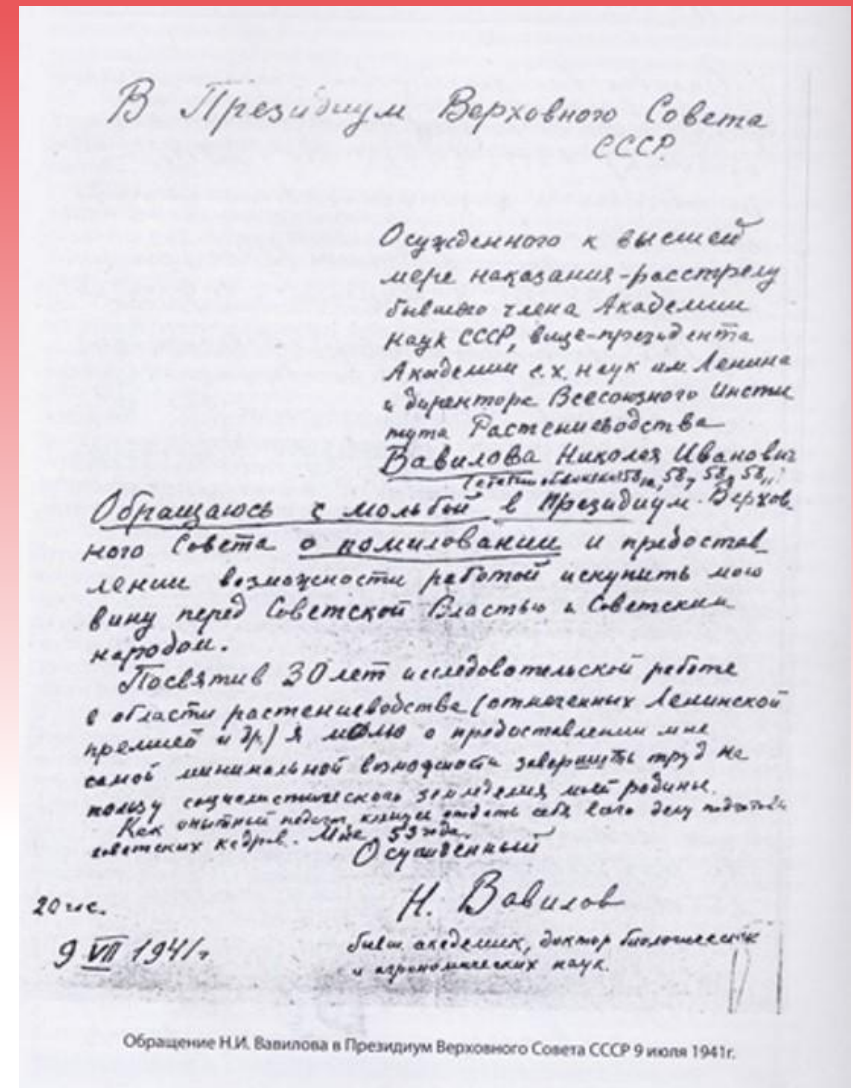 В Президиум Верховного Совета
СССР.
Осужденного к высшей
мере наказания-расстрелу
бывшего члена Академии
наук СССР, вице-президента
Академии с.х. наук им. Ленина
и директора Всесоюзного Инсти
тута Растениеводства
Вавилова Николая Ивановича
58 58 58
Обращаюсь с мольбой в Президиум Верхов-
ного Совета о помиловании и предостав_
лении возможности работой искупить мою
вину перед Советской Властью и Советским
народом.
Посвятив 30 лет исследовательской работе
в области растениеводства (отмеченных Ленинской
премией и др) я молю о предоставлении мне
самой минимальной возможности завершить труд на
пользу социалистического земледелия моей родины.
Как опытный педагог клянусь отдать себя всего делу подготовки
советских кадров. Мне 53 года.
Осужденный
20 час.
Н. Вавилов
9 VII 1941г.
бывш. академик, доктор биологических
и агрономических наук.
Обращение Н.И. Вавилова в Президиум Верховного Совета СССР 9 июля 1941г.